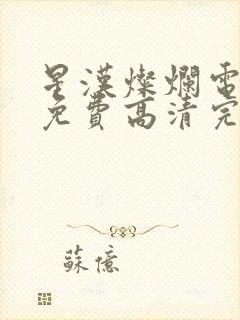 星漢燦爛電
免費高清完
蘇億